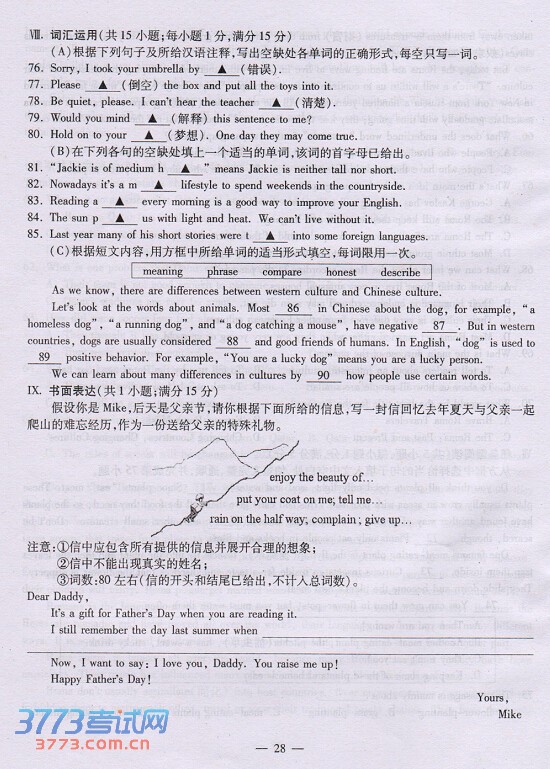 Ⅷ. 词汇运用(共15小题;每小题1分,满分15分)
(A)根据下列句子及所给汉语注释,写出空缺处各单词的正确形式,每空只写一词。
76. Sorry, I took your umbrella by ▲ (错误).
77. Please ▲ (倒空) the box and put all the toys into it.
78. Be quiet, please. I can't hear the teacher ▲ (清楚).
79. Would you mind ▲ (解释) this sentence to me?
80. Hold on to your ▲ (梦想). One day they may come true.
(B)在下列各句的空缺处填上一个适当的单词,该词的首字母已给出。
81. "Jackie is of medium h ▲ " means Jackie is neither tall nor short.
82. Nowadays it's a m ▲ lifestyle to spend weekends in the countryside.
83. Reading a ▲ every morning is a good way to improve your English.
84. The sun p ▲ us with light and heat. We can't live without it.
85. Last year many of his short stories were t ▲ into some foreign languages.
(C)根据短文内容,用方框中所给单词的适当形式填空,每词限用一次。
meaning phrase compare honest describe
As we know, there are differences between western culture and Chinese culture.
Let's look at the words about animals. Most 86 in Chinese about the dog, for example, "a
homeless dog", "a running dog", and "a dog catching a mouse", have negative 87 . But in western
countries, dogs are usually considered 88 and good friends of humans. In English, "dog" is used to
89 positive behavior. For example, "You are a lucky dog" means you are a lucky person.
We can learn about many differences in cultures by 90 how people use certain words.
Ⅸ. 书面表达(共1小题;满分15分)
假设你是Mike,后天是父亲节,请你根据下面所给的信息,写一封信回忆去年夏天与父亲一起
爬山的难忘经历,作为一份送给父亲的特殊礼物。
enjoy the beauty of…
put your coat on me; tell me…
rain on the half way; complain; give up…
注意:①信中应包含所有提供的信息并展开合理的想象;
②信中不能出现真实的姓名;
③词数:80左右(信的开头和结尾已给出,不计入总词数)。
Dear Daddy,
It's a gift for Father's Day when you are reading it.
I still remember the day last summer when
Now, I want to say: I love you, Daddy. You raise me up!
Happy Father's Day!
Yours,
Mike
3773考试网
3773.com.cn
— 28 —